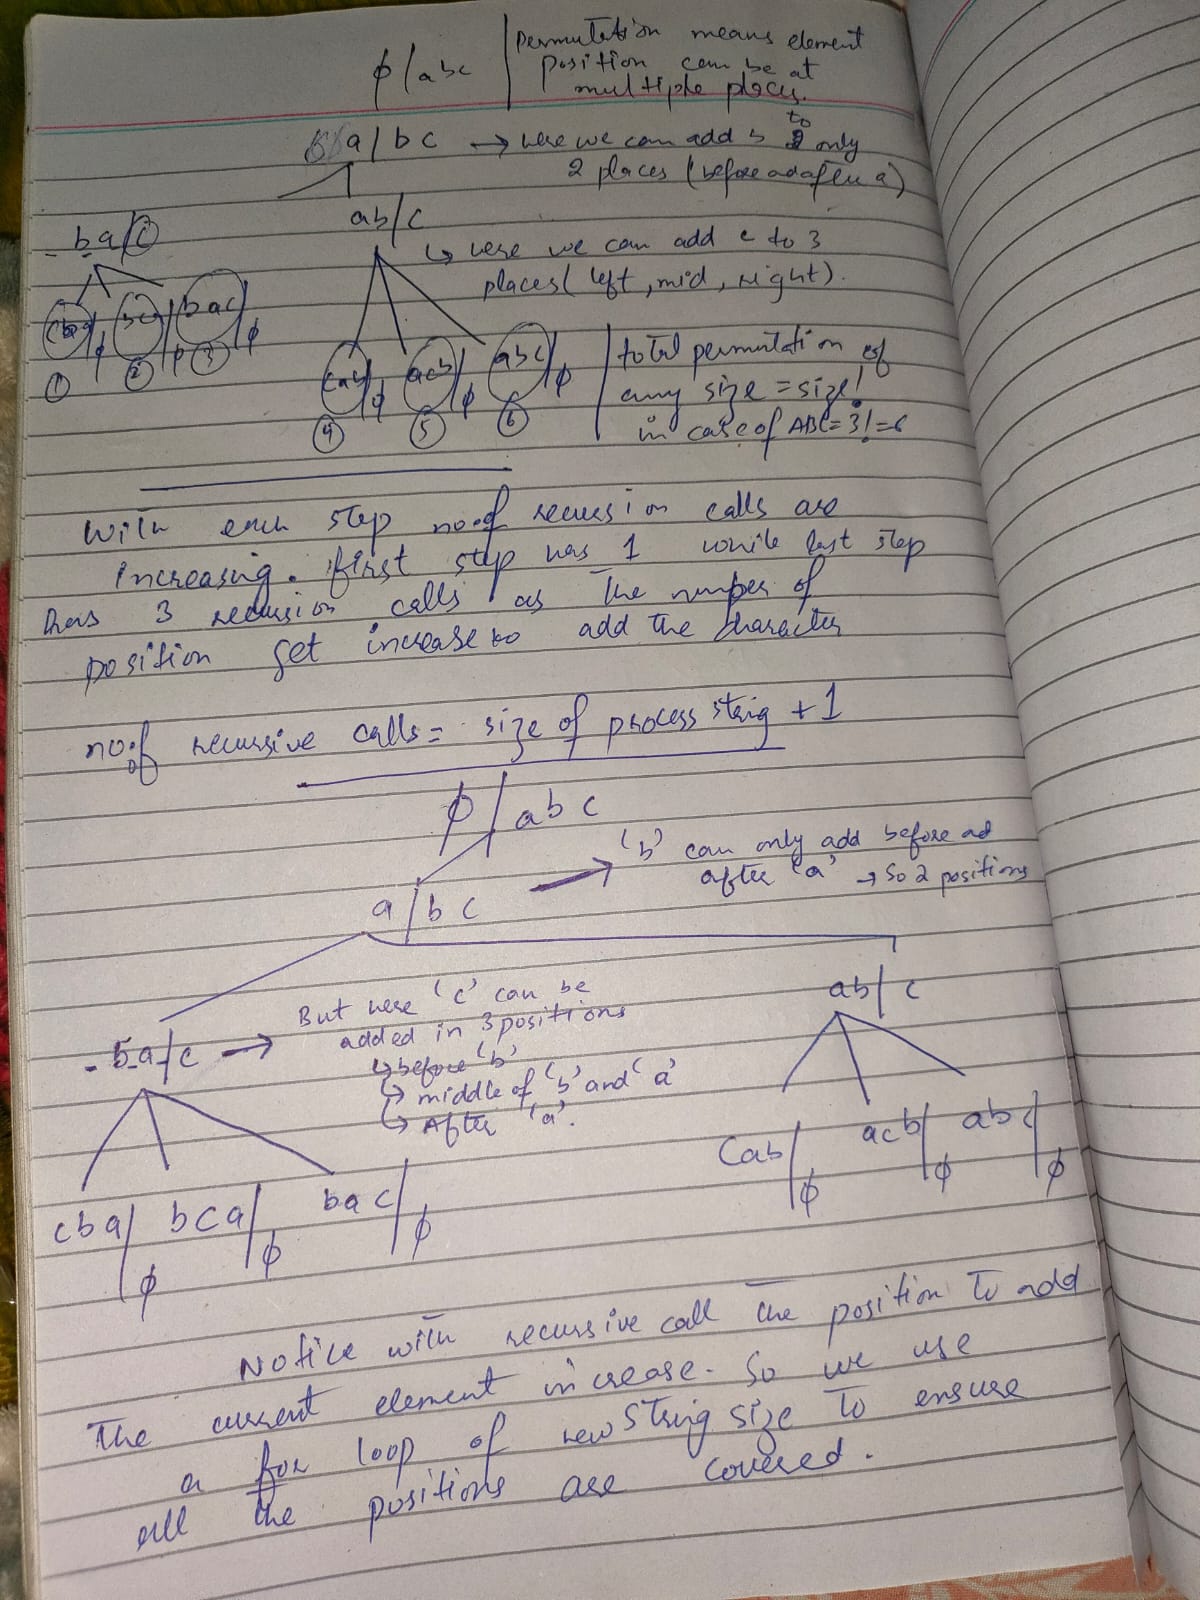 ϕ/abc
Permutation means element
position can be at
multiple places.
a/bc → here we can add b to only
2 places (before ad after a)
ba/c
ab/c
↳ here we can add c to 3
places (left, mid, right).
cba/ϕ bca/ϕ bac/ϕ
① ② ③
cab/ϕ acb/ϕ abc/ϕ
④ ⑤ ⑥
total permutation of
any size = size!
in case of ABC = 3! = 6
With each step no of recursion calls are
increasing. first step has 1 while last step
has 3 recursion calls as the number of
position get increase to add the character
no. of recursive calls = size of process strig + 1
ϕ/abc
a/bc
→ 'b' can only add before ad
after 'a' → So 2 positions
ba/c →
But here 'c' can be
added in 3 positions
↳ before 'b'
↳ middle of 'b' and 'a'
↳ After 'a'.
ab/c
cba/ϕ bca/ϕ bac/ϕ
cab/ϕ acb/ϕ abc/ϕ
Notice with recursive call the position to add
The current element increase. So we use
a for loop of new string size to ensure
all the positions are covered.